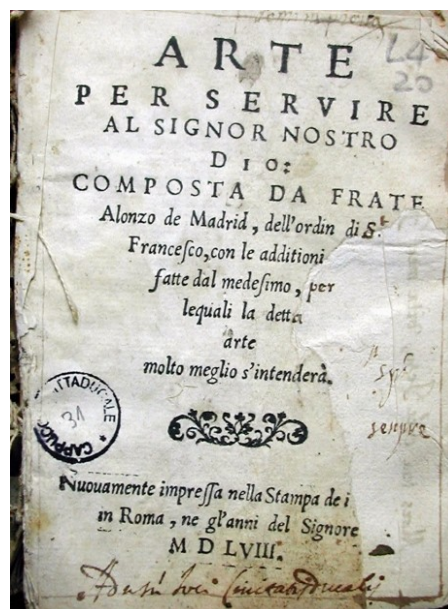 L4
20
ARTE
PER SERVIRE
AL SIGNOR NOSTRO
DIO:
COMPOSTA DA FRATE
Alonzo de Madrid, dell'ordin di S.
Franceſco, con le additioni
fatte dal medeſimo, per
lequali la detta
arte
molto meglio s'intenderà.
31
CAPPUCC CITTADUCALE
Nuouamente impreſſa nella Stampa de i
in Roma, ne gl'anni del Signore
M D LVIII.